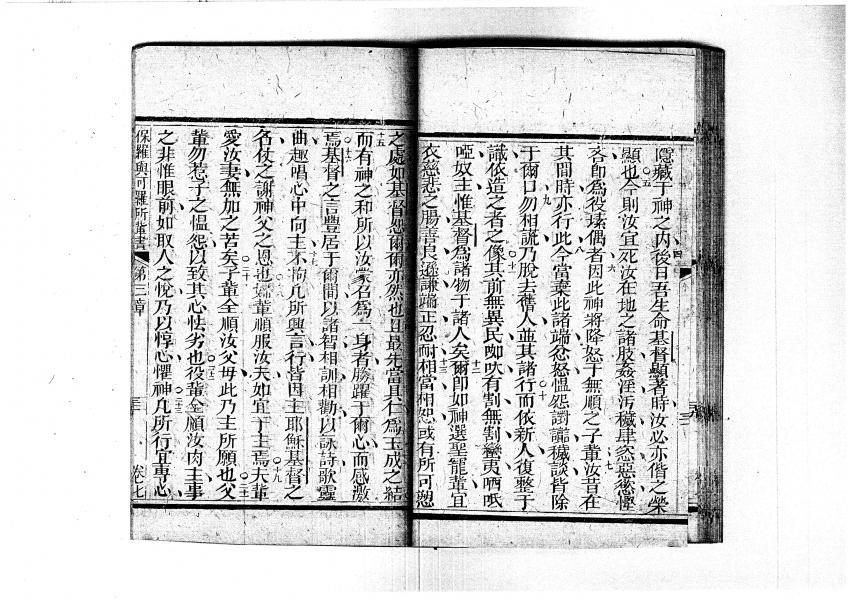 隱藏于神之內後日吾生命基督顯著時汝必亦偕之榮
顯也今則汝宜死汝在地之諸肢姦淫污穢肆恣惡慾慳
吝即為役瑧偶者因此神將降怒于無順之子輩汝昔在
其間時亦行此今當棄此諸端忿怒慍怨謝讟穢談皆除
于爾口勿相謊乃脫去舊人並其諸行而依新人復整于
識依造之者之像其前無異民
有割無割蠻夷
啞奴主惟基督為諸物于諸人矣爾即如神選聖寵輩宜
衣慈悲之腸善良遜謙端正忍耐相當相恕或有所可愬
之處如基督恕爾爾亦然也且最先當具仁為玉成之結
十五
而有神之和所以汝蒙召為一身者勝躍于爾心而感激
焉基督之言豐居于爾間以諸智相訓相勸以詠詩歌靈
曲趣唱心中向主不拘凡所興言行皆因主耶穌基督之
名仗之謝神父之恩也婦輩順服汝夫如宜于主焉夫輩
愛汝妻無加之苦矣子輩全順汝父母此乃主所願也父
輩勿惹子之慍怨以致其心怯劣也役輩全順汝肉主事
之非惟眼前如取人之悅乃以惇心懼神凡所行宜專心
保羅與可羅所輩書
第三章
三
卷七